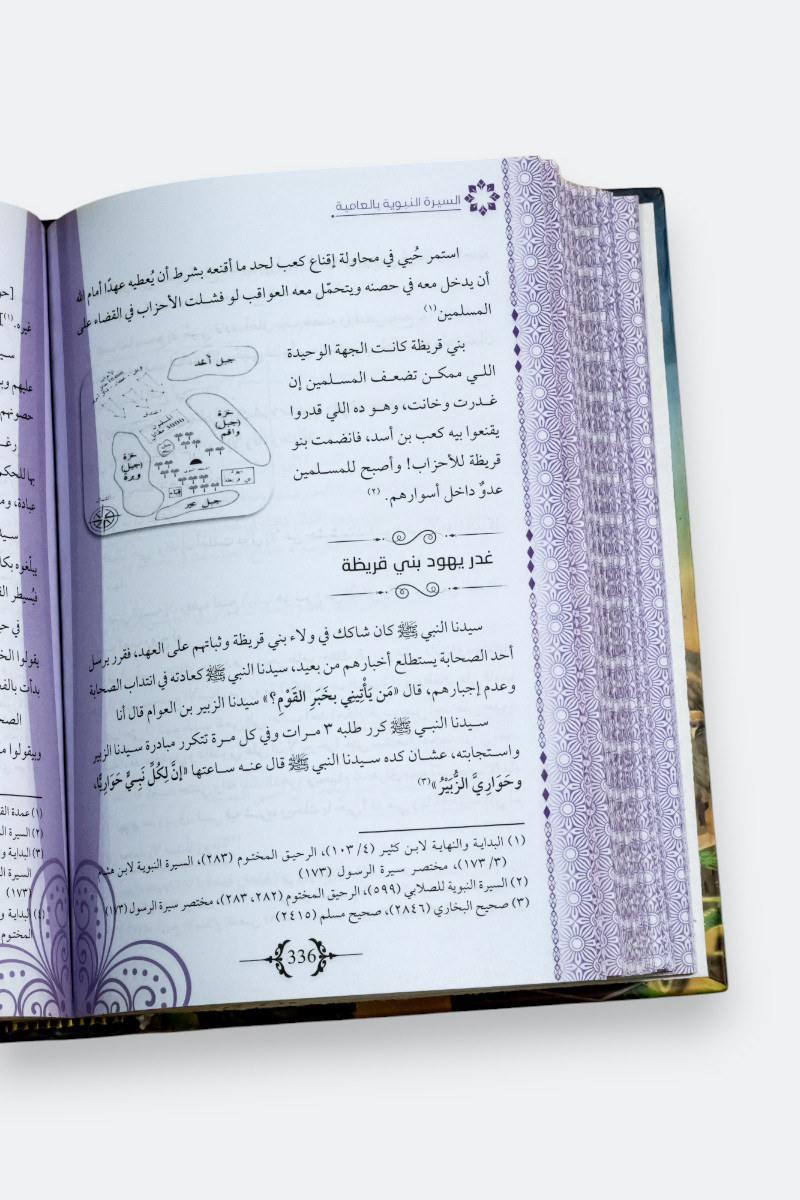 السيرة النبوية بالعامية
استمر حُيي في محاولة إقناع كعب لحد ما أقنعه بشرط أن يُعطيه عهدًا أمام الله
أن يدخل معه في حصنه ويتحمّل معه العواقب لو فشلت الأحزاب في القضاء على
المسلمين(١)
بني قريظة كانت الجهة الوحيدة
اللي ممكن تضعف المسلمين إن
غدرت وخانت، وهو ده اللي قدروا
يقنعوا بيه كعب بن أسد، فانضمت بنو
قريظة للأحزاب! وأصبح للمسلمين
عدوٌ داخل أسوارهم. (٢)
جبل أحد
حرّة
(جبل)
واقم
حرّة
(جبل)
وبرة
3000 مقاتل
قباء
جبل عير
غدر يهود بني قريظة
سيدنا النبي ﷺ كان شاكك في ولاء بني قريظة وثباتهم على العهد، فقرر يرسل
أحد الصحابة يستطلع أخبارهم من بعيد، سيدنا النبي ﷺ كعادته في انتداب الصحابة
وعدم إجبارهم، قال «مَن يَأْتِيني بخَبَرِ القَوْمِ؟» سيدنا الزبير بن العوام قال أنا
سيدنا النبي ﷺ كرر طلبه ٣ مرات وفي كل مرة تتكرر مبادرة سيدنا الزبير
واستجابته، عشان كده سيدنا النبي ﷺ قال عنه ساعتها «إنَّ لِكُلِّ نَبِيٍّ حَوَارِيًّا،
وحَوَارِيَّ الزُّبَيْرُ»(٣)
(١) البداية والنهاية لابن كثير (٤/ ١٠٣)، الرحيق المختوم (٢٨٣)، السيرة النبوية لابن هشام
(٣/ ١٧٣)، مختصر سيرة الرسول (١٧٣)
(٢) السيرة النبوية للصلابي (٥٩٩)، الرحيق المختوم (٢٨٢، ٢٨٣)، مختصر سيرة الرسول (١٧٣)
(٣) صحيح البخاري (٢٨٤٦)، صحيح مسلم (٢٤١٥)
336
غيره.(١)]
عليهم
حصونهم
بها للحكم
عبادة،
يبلّغوه
في
يقولوا
بدأت
ويقولوا
(١) عمدة
(٢) السيرة
(٣) البداية
السيرة
(١٧٣)
(٤) البداية
المختوم